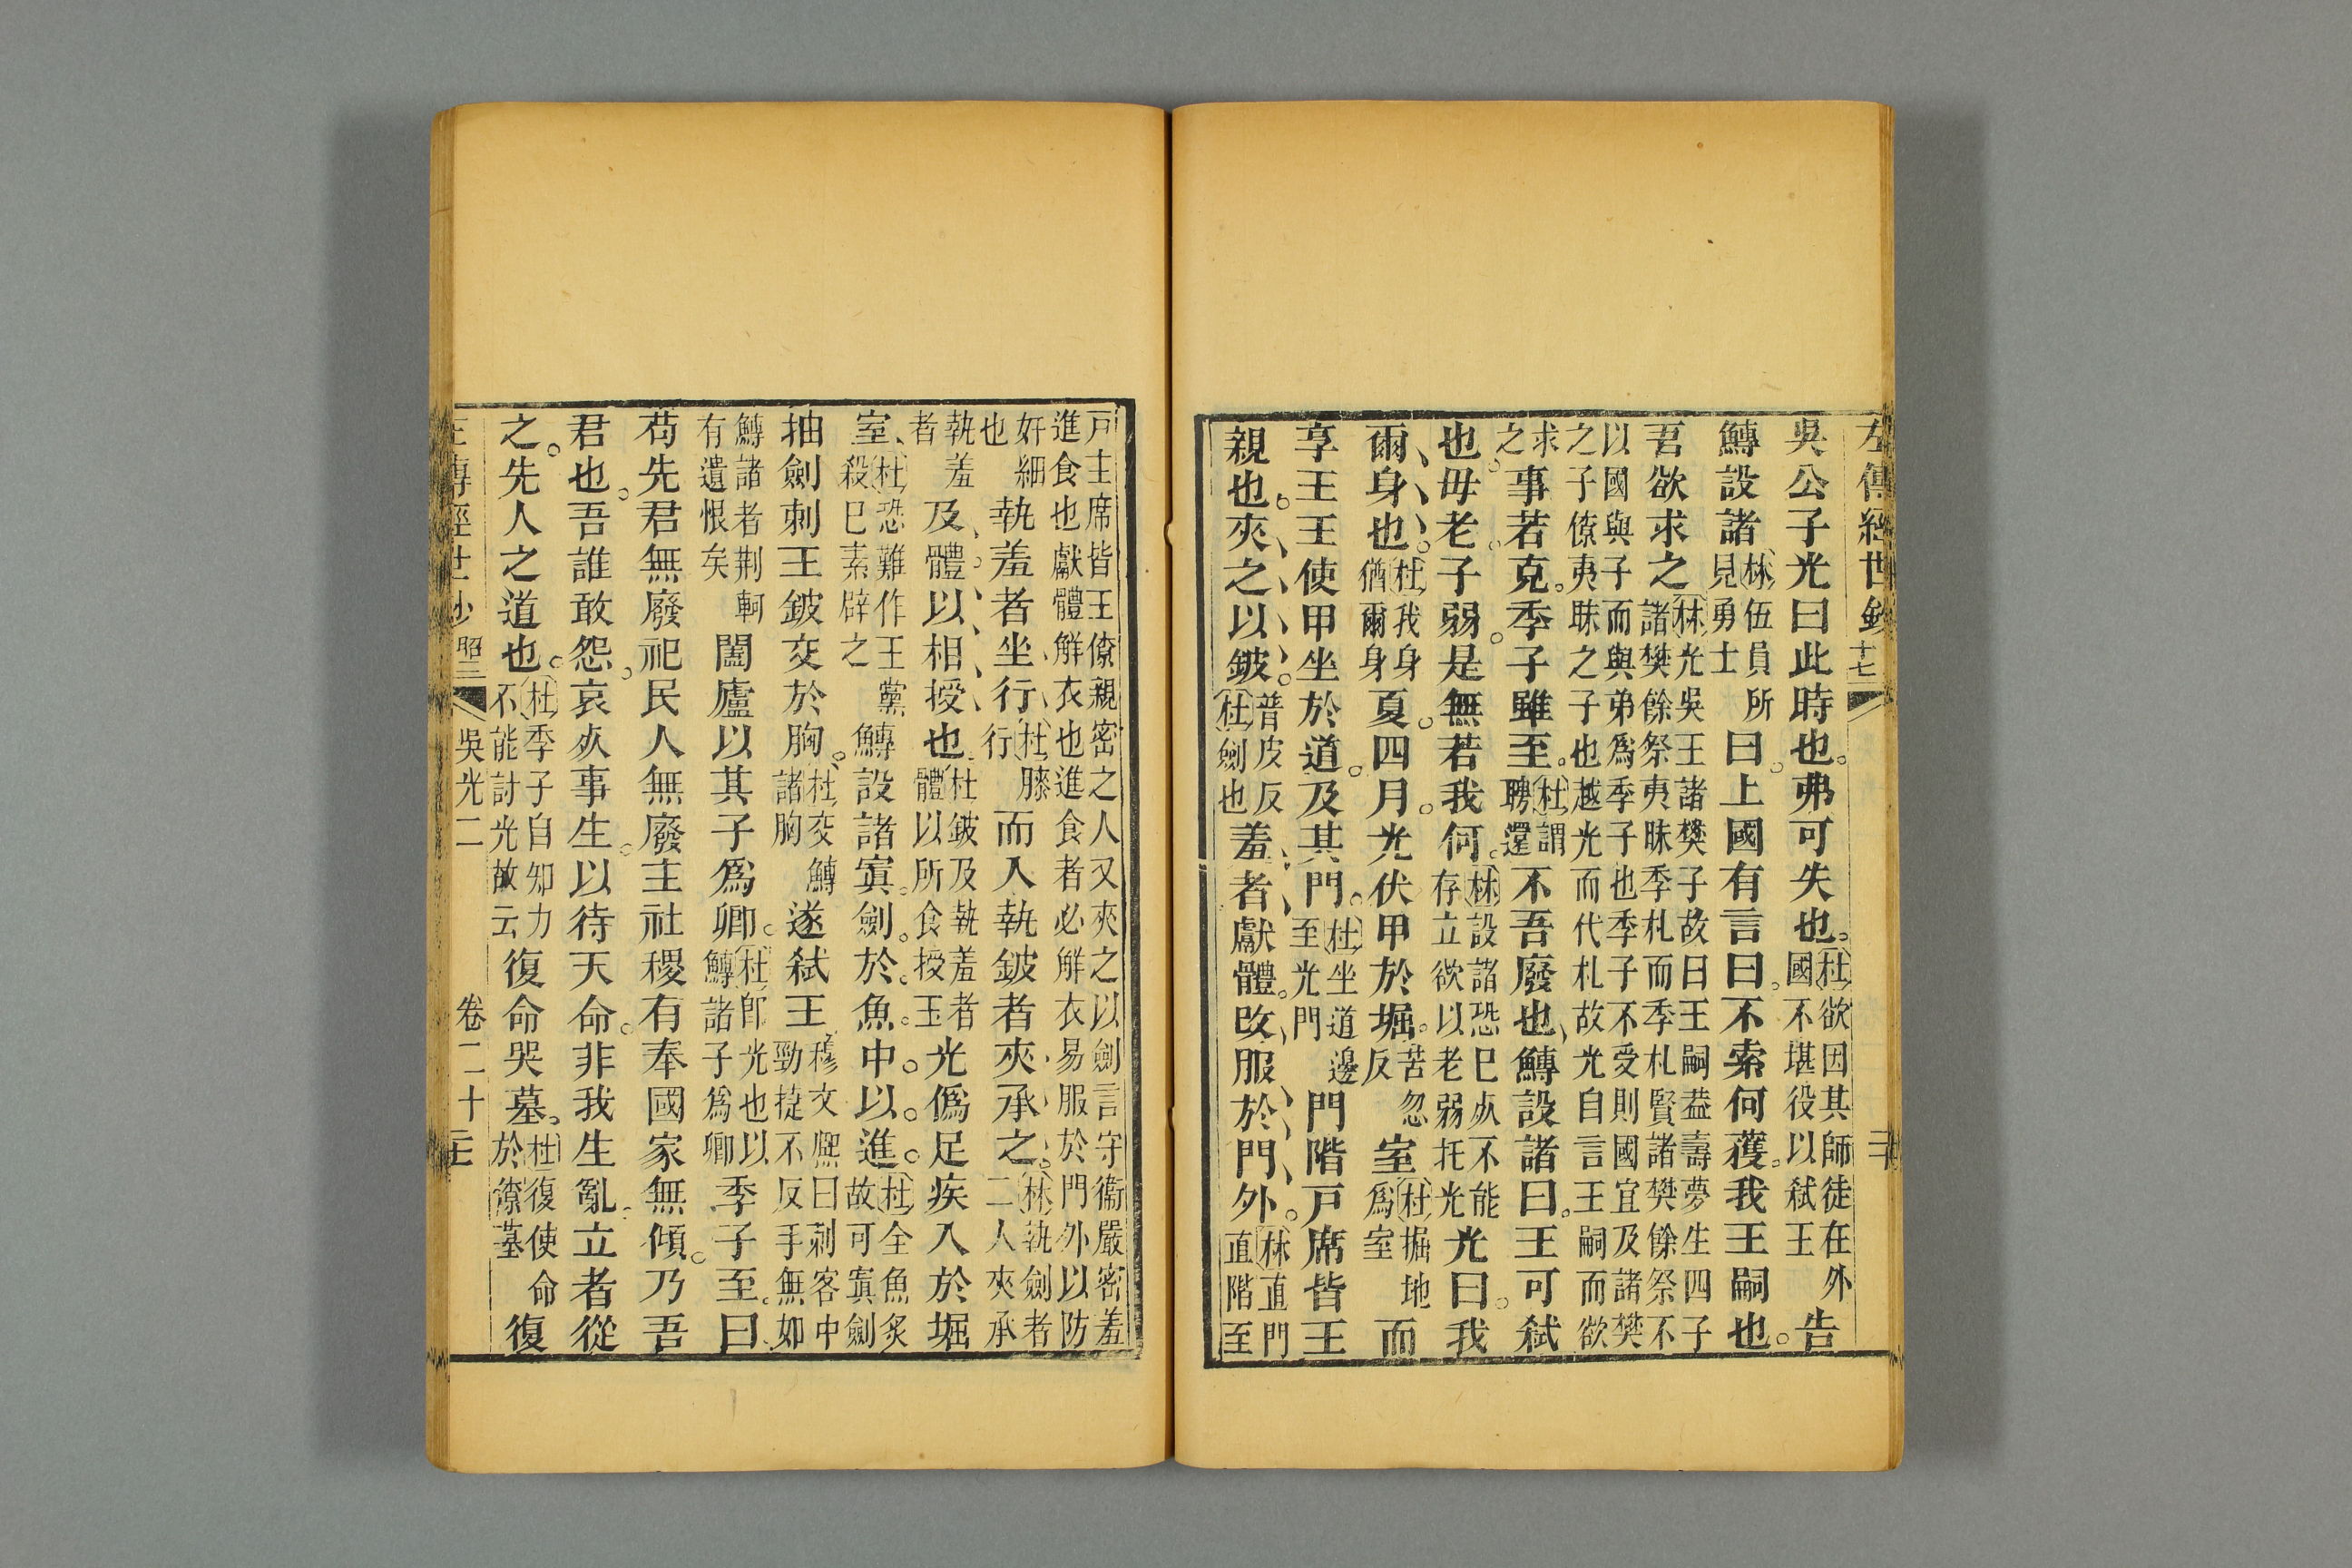 左傳經世鈔 十七
吳公子光曰此時也弗可失也。杜欲因其師徒在外國不堪役以弒王告
鱄設諸林伍員所見勇士曰。上國有言曰。不索何獲。我王嗣也。
吾欲求之林光吳王諸樊子故曰王嗣葢壽夢生四子諸樊餘祭夷昧季札而季札賢諸樊餘祭不
以國與子而與弟爲季子也季子不受則國宜及諸樊之子僚夷昧之子也越光而代札故光自言王嗣而欲
求之事若克。季子雖至。杜謂聘還不吾廢也、鱄設諸曰。王可弒
也。毋老。子弱。是無若我何。林設諸恐巳㱙不能存立欲以老弱托光光曰。我
爾、身、也、。杜我身猶爾身夏。四月。光伏甲於堀。苦忽反室杜掘地爲室而
享王王使甲坐於道。及其門。杜坐道邊至光門門階戸席皆王
親也。夾、之、以、鈹。普皮反杜劍也羞、者、獻體。改服、於、門、外。林直門直階至
戸主席皆王僚親密之人又夾之以劍言守衞嚴密羞進食也獻體解衣也進食者必解衣易服於門外以防
奸細也執羞者坐行、杜膝行而入執鈹者夾承之。林執劍者二人夾承
執羞者及、體。以、相、授、也杜鈹及執羞者體以所食授玉光僞足疾入於堀
室、杜恐難作王黨殺巳素辟之鱄設諸寘。劍。於。魚。中。以。進。杜全魚炙故可寘劍
抽劍刺王鈹交於胸。杜交諸胸鱄遂弒王穆文熈曰刺客中勁捷不反手無如
鱄諸者荆軻有遺恨矣闔廬以其子爲卿。杜卽光也以鱄諸子爲卿季子至。曰
苟先君無廢祀民人無廢主社稷有奉國家無傾。乃吾
君也。吾誰敢怨。哀㱙事生。以待天命。非我生亂。立者從
之。先人之道也。杜季子自知力不能討光故云復命哭墓。杜復使命於僚墓復
左傳經世鈔 昭三 吳光二 卷二十三